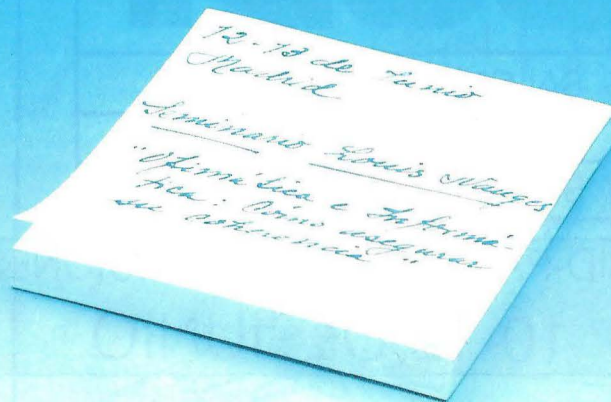 12-13 de Junio
Madrid
Seminario Louis Nauges
"Ofimática e Informá-
tica: Cómo asegurar
su coherencia"